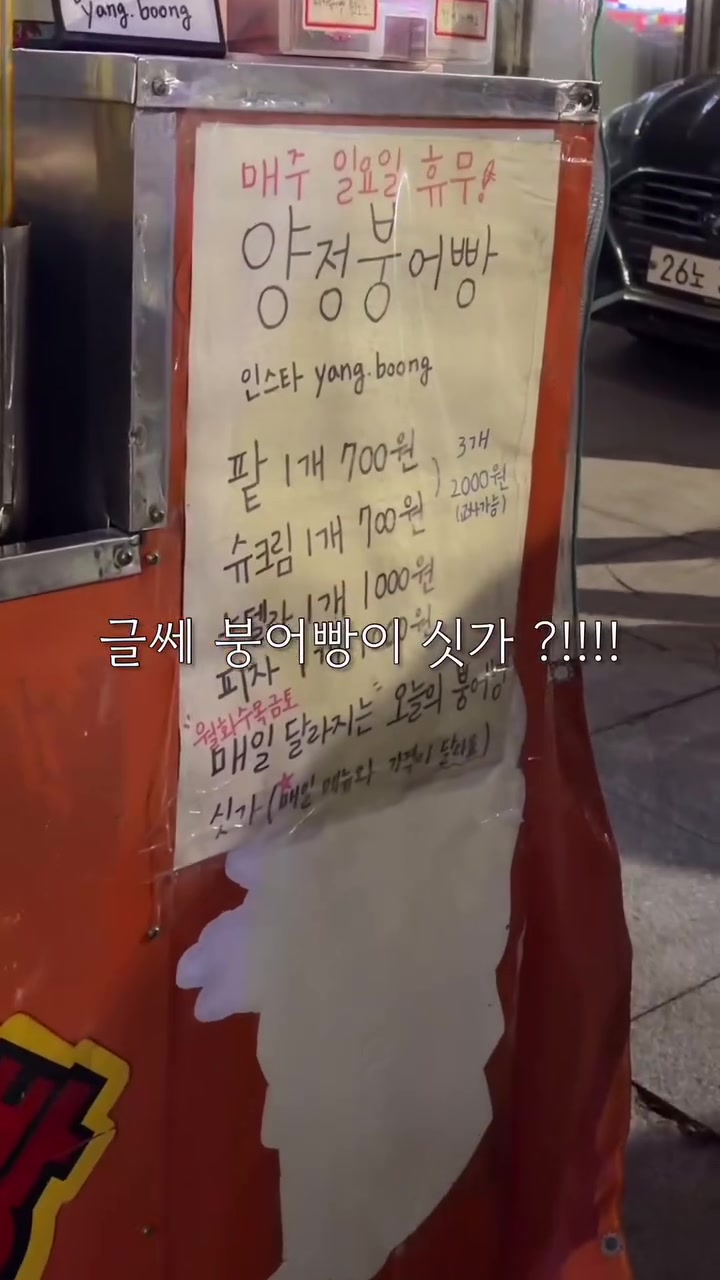 yang.boong
매주 일요일 휴무!
양정붕어빵
인스타 yang.boong
팥 1개 700원
슈크림 1개 700원
3개
2000원
(교차가능)
1개 1000원
글쎄 붕어빵이 싯가 ?!!!!
피자
"월화수목금토"
매일 달라지는 오늘의 붕어빵
싯가 (매일 메뉴와 가격이 달라요)
26노